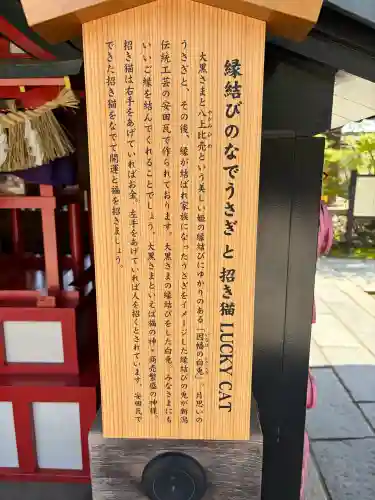 縁結びのなでうさぎ と 招き猫 LUCKY CAT
大黒さまと八上比売という美しい姫の縁結びにゆかりのある「因幡の白兎」。片思いの
やかみひめ
いなば
うさぎと、その後、縁が結ばれ家族になったうさぎをイメージした縁結びの兎が新潟
伝統工芸の安田瓦で作られております。大黒さまの縁結びをした白兎…みなさまにも
いいご縁を結んでくれることでしょう。大黒さまといえば福の神・商売繁盛の神様。
招き猫は右手をあげていればお金、左手をあげていれば人を招くとされています。安田瓦で
できた招き猫をなでて開運と福を招きましょう。